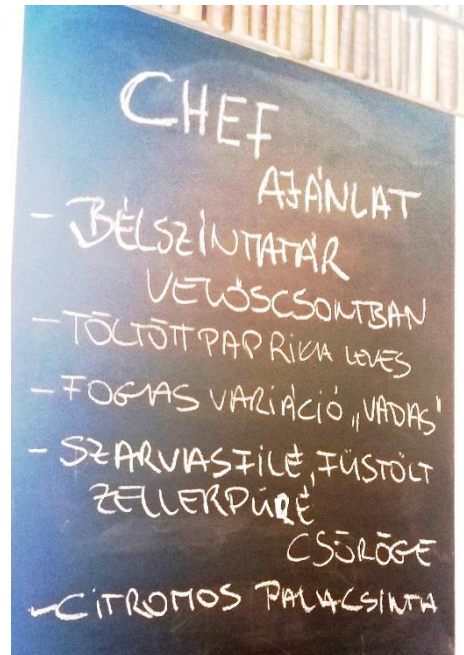 CHEF
AJÁNLAT
- BÉLSZÍNTATÁR
VELŐSCSONTBAN
- TÖLTÖTT PAPRIKA LEVES
- FOGAS VARIÁCIÓ „VADAS"
- SZARVASFILÉ, FÜSTÖLT
ZELLERPÜRÉ
CSÖRÖGE
- CITROMOS PALACSINTA